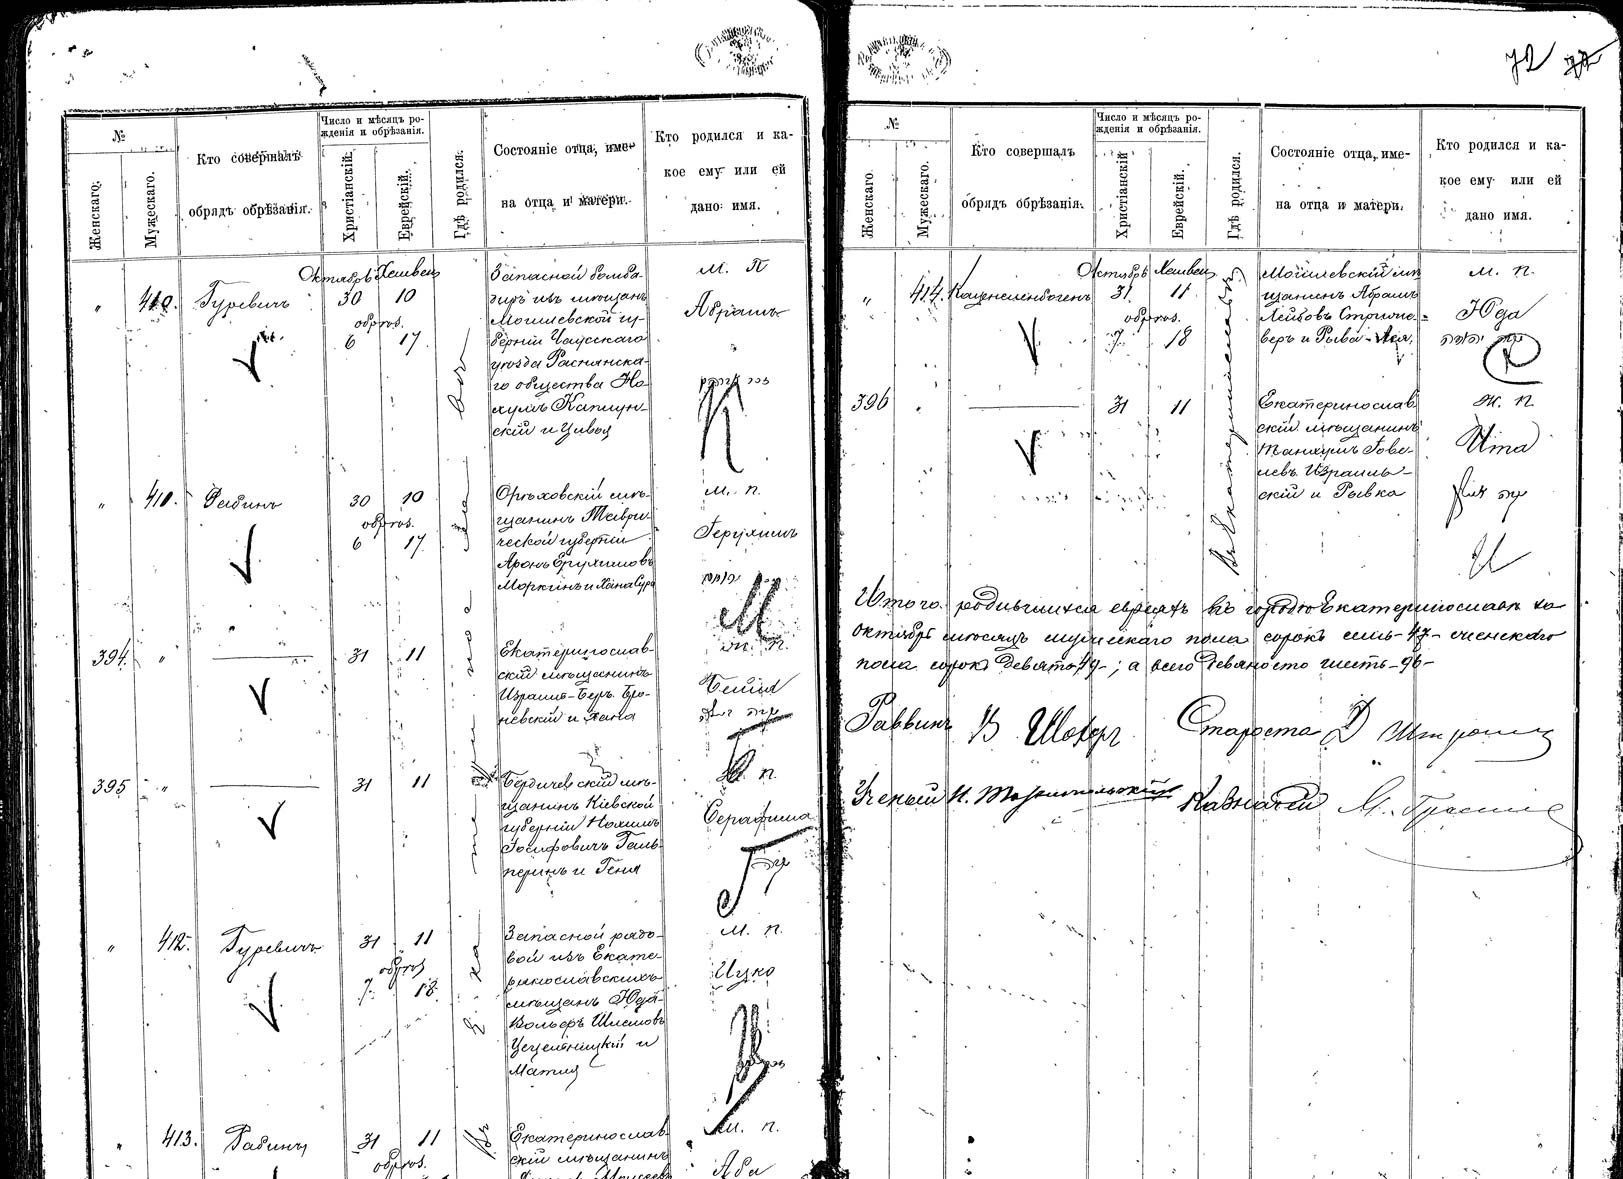 №
Женскаго.
Мужескаго.
Кто совершалъ
обрядъ обрѣзанія.
Число и мѣсяцъ ро-
жденія и обрѣзанія.
Христіанскій.
Еврейскій.
Гдѣ родился.
Состояніе отца, име-
на отца и матери.
Кто родился и ка-
кое ему или ей
дано имя.
Октябрь Хешвенъ
" 410. Гуревичъ 30 10
обрѣз.
6 17
Запасной бомба-
диръ изъ мѣщанъ
Могилевской гу-
берніи Чаусскаго
уѣзда Раснянска-
го общества На-
хумъ Каплун-
скій и Цивья
М. П.
Абрамъ
" 411. Рабинъ 30 10
обрѣз.
6 17
Орѣховскій мѣ-
щанинъ Таври-
ческой губерніи
Аронъ Ерухимовъ
Моркинъ и Хана Сура
М. п.
Іерухимъ
394. " 31 11
Екатеринослав-
скій мѣщанинъ
Израиль-Беръ Бро-
невскій и Хана
ж. п.
Бейля
395 " 31 11
Бердичевскій мѣ-
щанинъ Кіевской
губерніи Нохимъ
Іосифовичъ Галь-
перинъ и Геня
ж. п.
Серафима
" 412. Гуревичъ 31 11
обрѣз
7 18
Запасной рядо-
вой изъ Екате-
ринославскихъ
мѣщанъ Юда-
Вольфъ Шлемовъ
и
Матля
М. п.
Ицко
" 413. Рабинъ 31 11
обрѣз.
Екатеринослав-
скій мѣщанинъ
М. п.
Аба
72
№
Женскаго.
Мужескаго.
Кто совершалъ
обрядъ обрѣзанія.
Число и мѣсяцъ ро-
жденія и обрѣзанія.
Христіанскій
Еврейскій.
Гдѣ родился.
Состояніе отца, име-
на отца и матери.
Кто родился и ка-
кое ему или ей
дано имя.
Октябрь Хешвенъ
" 414. Каценеленбогенъ 31 11
обрѣз.
7 18
Въ Екатеринославѣ
Могилевскій мѣ-
щанинъ Абрамъ
Лейбовъ
и Рыва-Лея
М. п.
Юда
396 " 31 11
Екатеринослав-
скій мѣщанинъ
Танхумъ Гове-
левъ Израиль-
скій и Рывка
Ж. п.
Ита
И
Итого родившихся евреевъ въ городѣ Екатеринославѣ за
октябрь мѣсяцъ мужескаго пола сорокъ семь-47- женскаго
пола сорокъ девять-49-; а всего девяносто шесть-96-
Раввинъ В Шахоръ Староста Д
Ученый Казначей